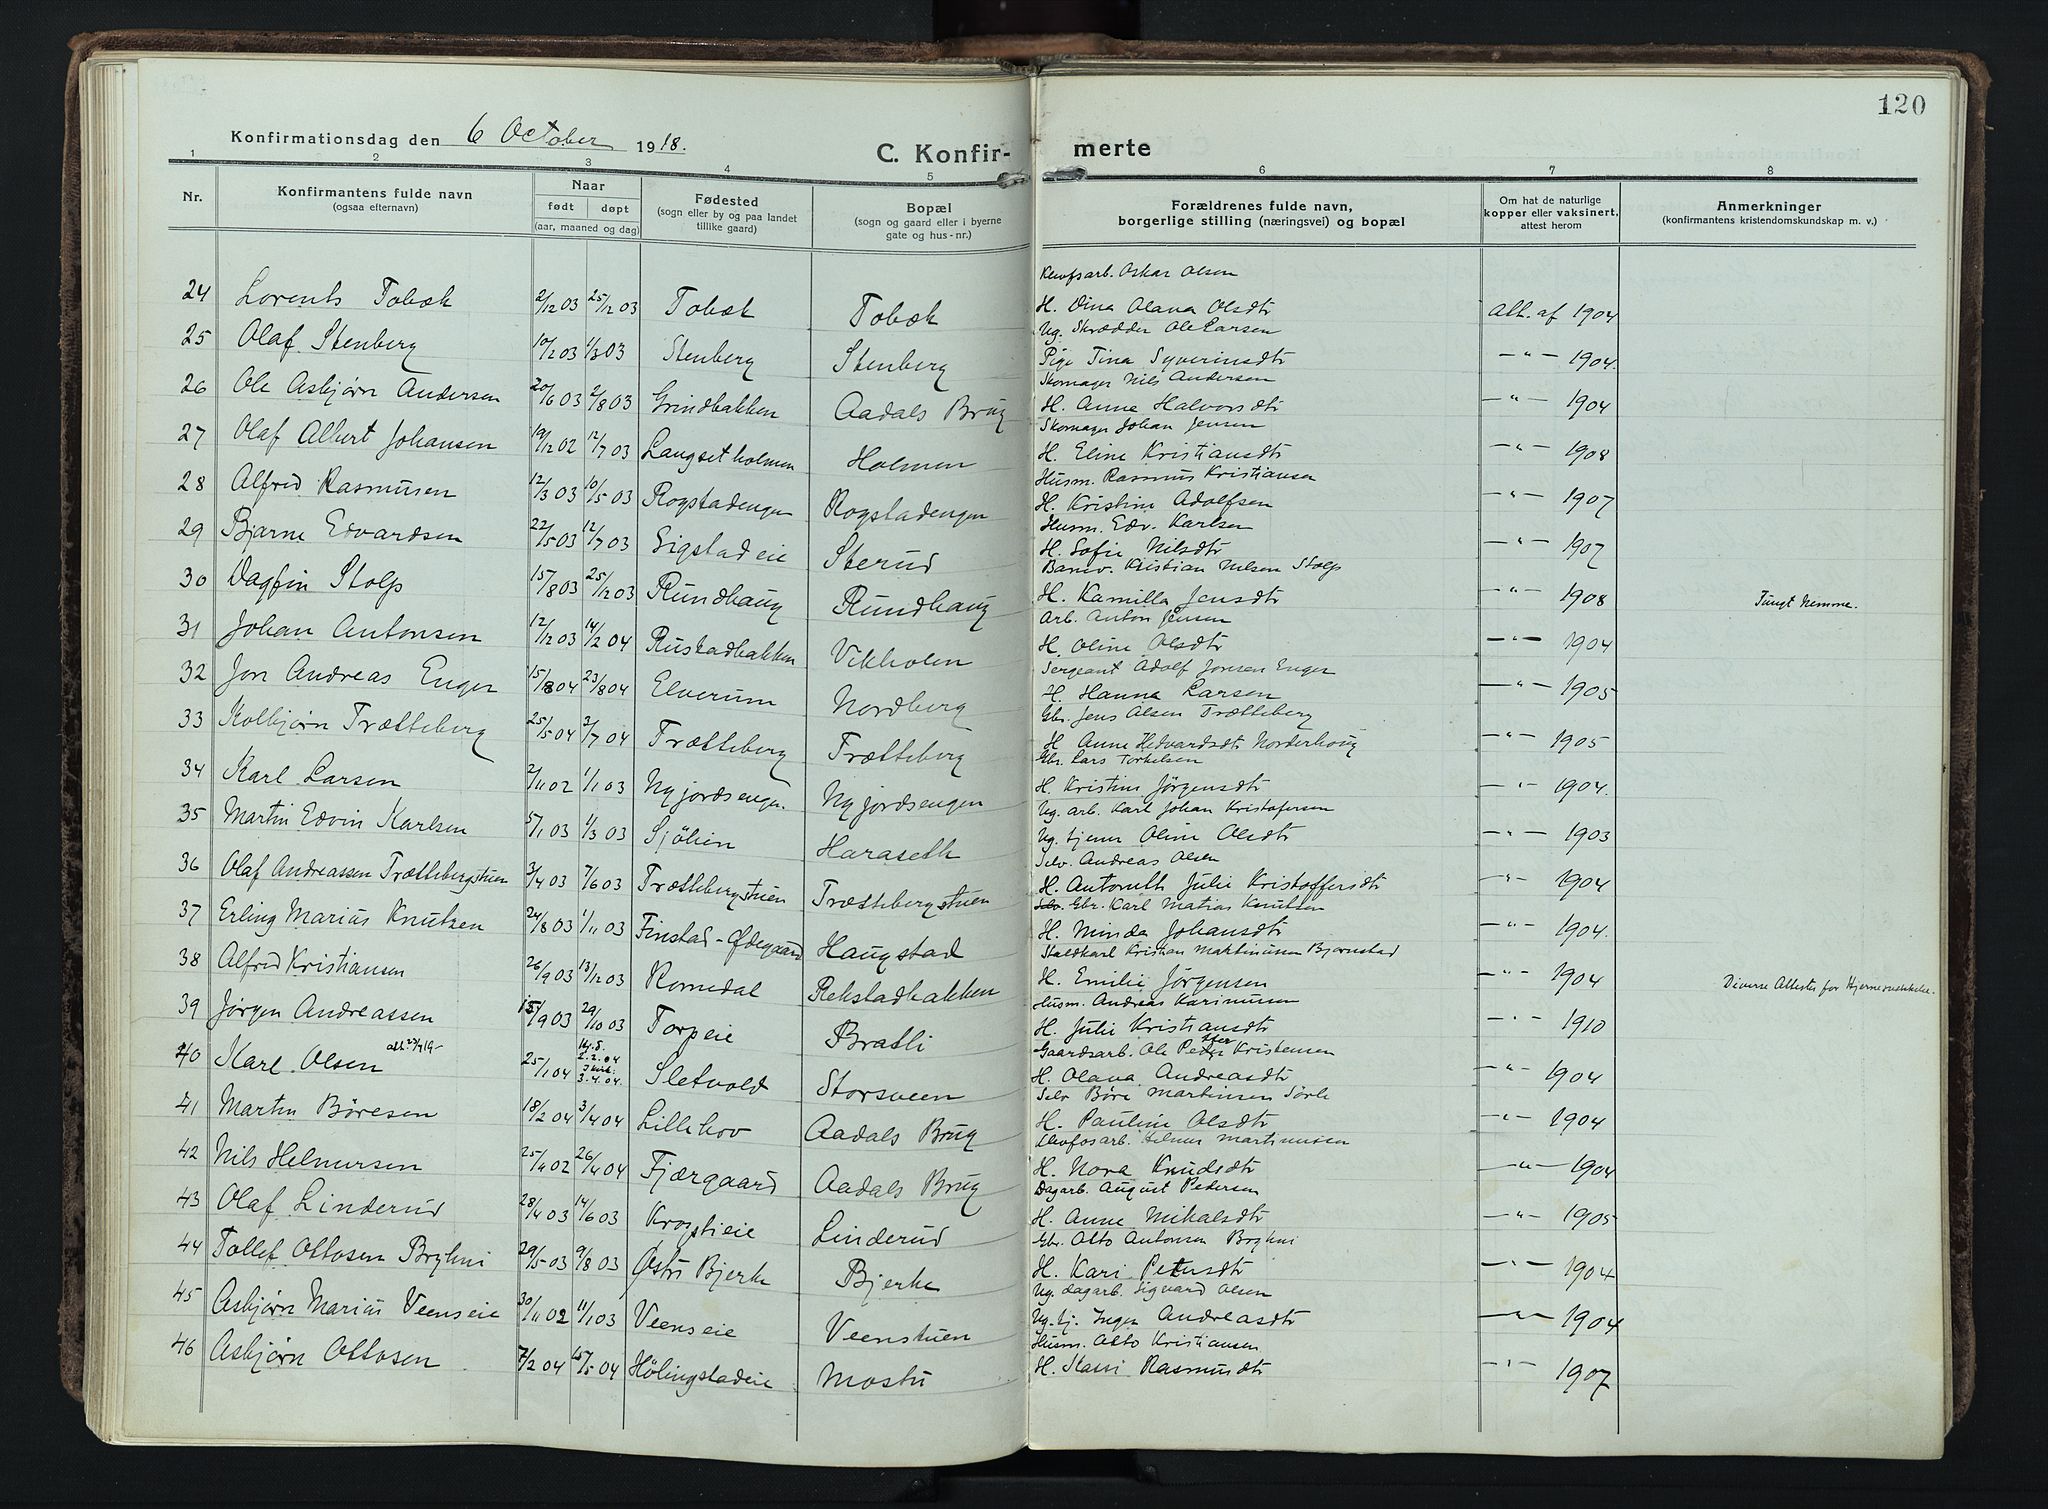 120
Konfirmationsdag den 6 October 1918.
C. Konfir-merte
1 2 3 4 5 6 7 8
Nr.
Konfirmantens fulde navn
(ogsaa efternavn)
Naar
født døpt
(aar, maaned og dag)
Fødested
(sogn eller by og paa landet
tillike gaard)
Bopæl
(sogn og gaard eller i byerne
gate og hus-nr.)
Forældrenes fulde navn,
borgerlige stilling (næringsvei) og bopæl
Om hat de naturlige
kopper eller vaksinert,
attest herom
Anmerkninger
(konfirmantens kristendomskundskap m. v.)
Klevfosarb. Oskar Olsen
24 Lorents Tobæk 2/12 03 25/12 03 Tobæk Tobæk H. Dina Olava Olsdtr Att. af 1904
Ug. Skrædder Ole Larsen
25 Olaf Stenberg 10/2 03 1/3 03 Stenberg Stenberg Pige Tina Syverinsdtr -"- 1904.
Skomager Nils Andersen
26 Ole Asbjørn Andersen 20/6 03 2/8 03 Grindbakken Aadals Brug H. Anne Halvorsdtr -"- 1904
Skomager Johan Jensen
27 Olaf Albert Johansen 19/12 02 12/7 03 Langsetholmen Holmen H. Eline Kristiansdtr -"- 1908
Husm. Rasmus Kristiansen
28 Alfred Rasmusen 12/3 03 10/5 03 Rogstadengen Rogstadengen H. Kristine Adolfsen -"- 1907
Husm. Edv. Karlsen
29 Bjarne Edvardsen 22/5 03 12/7 03 Sigstadeie Sterud H. Sofie Nilsdtr -"- 1907
Banev. Kristian Nilsen Stolp
30 Dagfin Stolp 15/8 03 25/12 03 Rundhaug Rundhaug H. Kamilla Jensdtr -"- 1908 Tungt Nemme.
Arb. Anton Jensen
31 Johan Antonsen 12/12 03 14/2 04 Rustadbakken Vikholen H. Oline Olsdtr -"- 1904
Sergeant Adolf Jonsen Enger
32 Jon Andreas Enger 15/8 04 23/8 04 Elverum Nordberg H. Hanna Larsen -"- 1905
Gbr. Jens Olsen Trætteberg
33 Kolbjørn Trætteberg 25/5 04 2/7 04 Trætteberg Trætteberg H. Anne Hedvardsdtr Norderhoug -"- 1905
Gbr. Lars Torkelsen
34 Karl Larsen 2/11 02 1/1 03 Nyjordsengen. Nyjordsengen H. Kristine Jørgensdtr -"- 1904.
Ug. arb. Karl Johan Kristofersen
35 Martin Edvin Karlsen 5/1 03 1/3 03 Sjølien Haraseth Ug. tjener Oline Olsdtr -"- 1903
Selv. Andreas Olsen
36 Olaf Andreassen Trættebergstuen 3/4 03 7/6 03 Trættebergstuen Trættebergstuen H. Antonette Julie Kristoffersdtr -"- 1904
Selv. Gbr. Karl Matias Knutsen
37 Erling Marius Knutzen 24/8 03 1/11 03 Finstad-Ødegaard Haugstad H. Minda Johansdtr -"- 1904.
Staldkarl Kristian Martinusen Bjørnstad
38 Alfred Kristiansen 26/9 03 13/12 03 Romedal Rekstadbakken H. Emilie Jørgensen -"- 1904 Diverse Attester for Hjernesvækkelse.
Husm. Andreas Karinusen
39 Jørgen Andreassen 15/9 03 29/10 03 Torpeie Bratli H. Julie Kristiansdtr -"- 1910
Gaardsarb. Ole Petter Kristensen
40 Karl Olsen att 27/4 19- 25/1 04 Hj.d. 2.2.04 I kirk. 3.4.04. Sletvold Storsveen H. Olava Andreasdtr -"- 1904
Selv Børe Martinsen Sørli
41 Martin Børesen 18/2 04 3/4 04 Lillehov Aadals Brug H. Pauline Olsdtr -"- 1904
Klevfosarb. Helmer Martinussen
42 Nils Helmersen 25/4 02 26/4 04 Fjærgaard Aadals Brug H. Nora Knudsdtr -"- 1904
Dagarb. August Pedersen
43 Olaf Linderud 28/4 03 14/6 03 Krogstieie Linderud H. Anne Mikalsdtr -"- 1905
Gbr. Otto Antonsen Bryhni
44 Tollef Ottosen Bryhni 29/5 03 9/8 03 Østre Bjerke Bjerke H. Kari Petersdtr -"- 1904
Ug. dagarb. Sigvard Olsen
45 Asbjørn Marius Veenseie 30/11 02 11/1 03 Veenseie Veenstuen Ug. tj. Inger Andreasdtr -"- 1904
Husm. Otto Kristiansen
46 Asbjørn Ottosen 7/2 04 15/5 04 Hølingstadeie Mostu H. Kassi Rasmusdtr -"- 1907